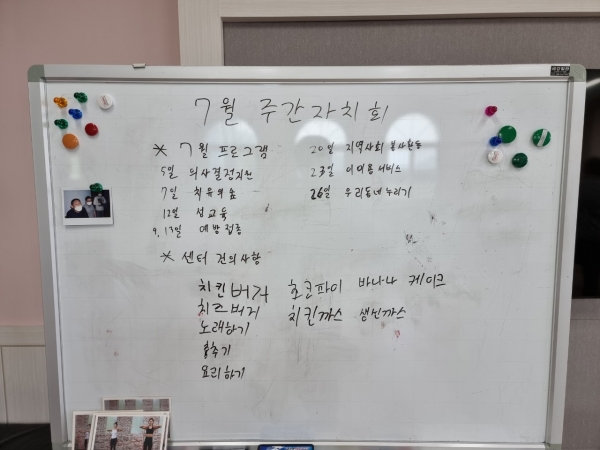 7월 주간자치회
* 7월 프로그램
5일 의사결정지원
7일 치유의숲
12일 성교육
9, 13일 예방접종
20일 지역사회 봉사활동
23일 이미용서비스
26일 우리동네누리기
* 센터 건의사항
치킨버거 초코파이 바나나 케이크
치즈버거 치킨까스 생선까스
노래하기
춤추기
요리하기